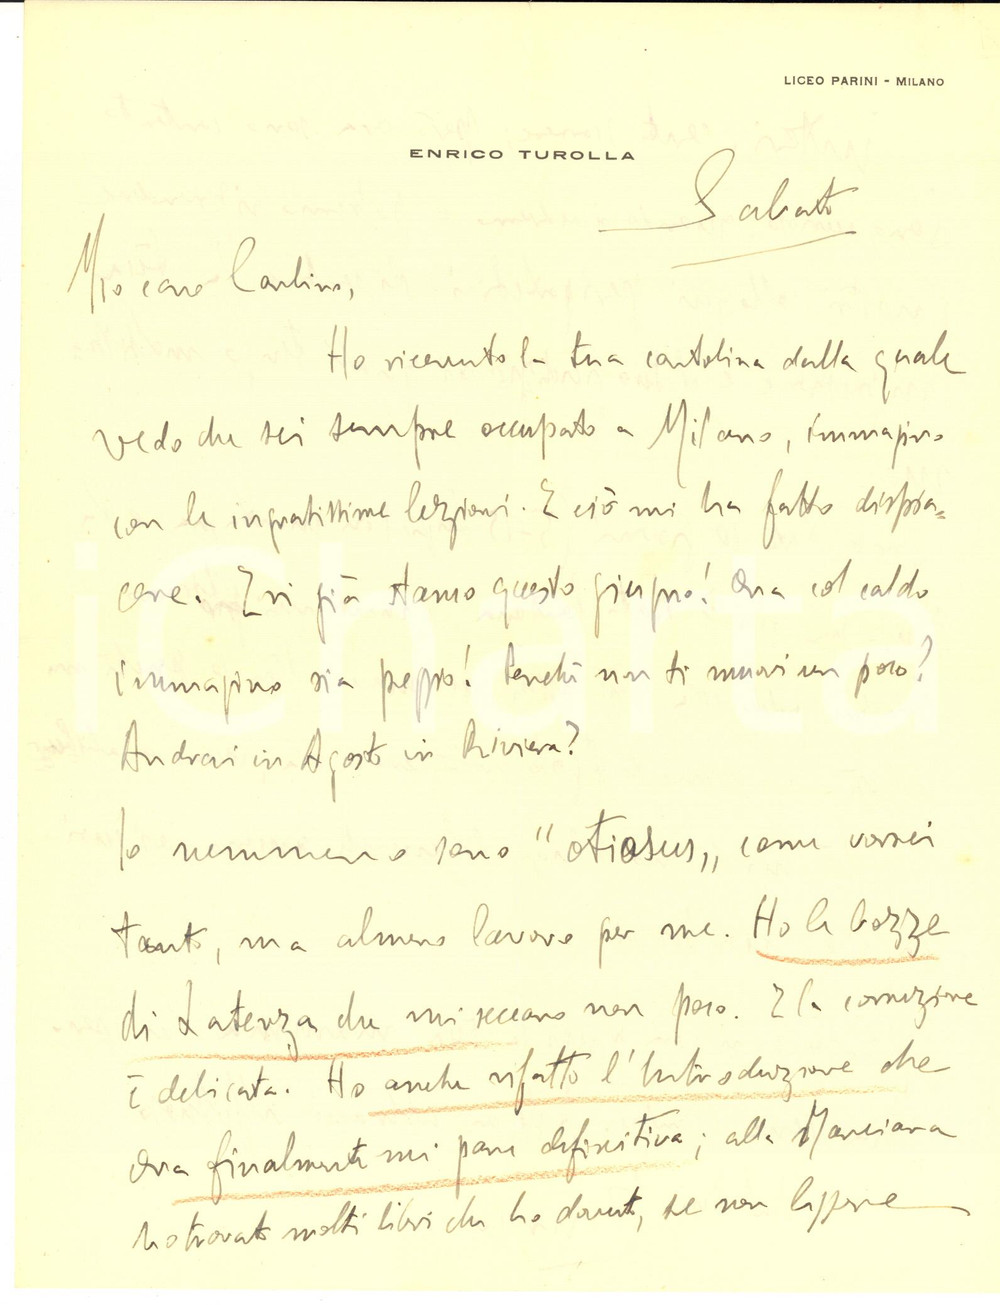 LICEO PARINI - MILANO
ENRICO TUROLLA
Sabato
Mio caro Carlino,
Ho ricevuto la tua cartolina dalla quale
vedo che sei sempre occupato a Milano, immagino
con le ingratissime lezioni. E ciò mi ha fatto dispia=
cere. Eri già stanco questo giugno! Ora col caldo
immagino sia peggio! Perché non ti muovi un poco?
Andrai in Agosto in Riviera?
Io nemmeno sono "otiosus„ come vorrei
tanto, ma almeno lavoro per me. Ho le bozze
di Laterza che mi seccano non poco. E la correzione
è delicata. Ho anche rifatto l'Introduzione che
ora finalmente mi pare definitiva; alla Marciana
ho trovato molti libri che ho dovuto, se non leggere
iCharta